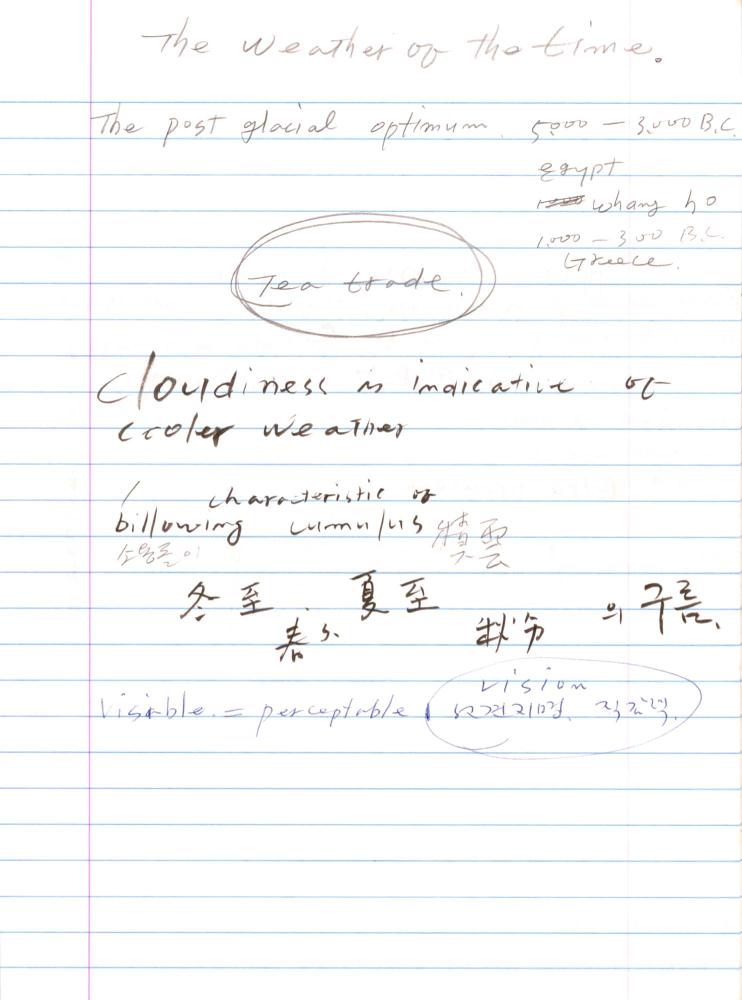 The weather of the time.
The post glacial optimum. 5.000 — 3.000 B.C.
Egypt
Whang ho
1.000 — 300 B.C.
Greece.
Tea trade.
Cloudiness is indicative of
cooler weather
characteristic of
billowing cumulus 積雲
소용돌이
冬至. 夏至
春分 秋分 의 구름.
visible. = perceptable
vision
선견지명. 직감력.